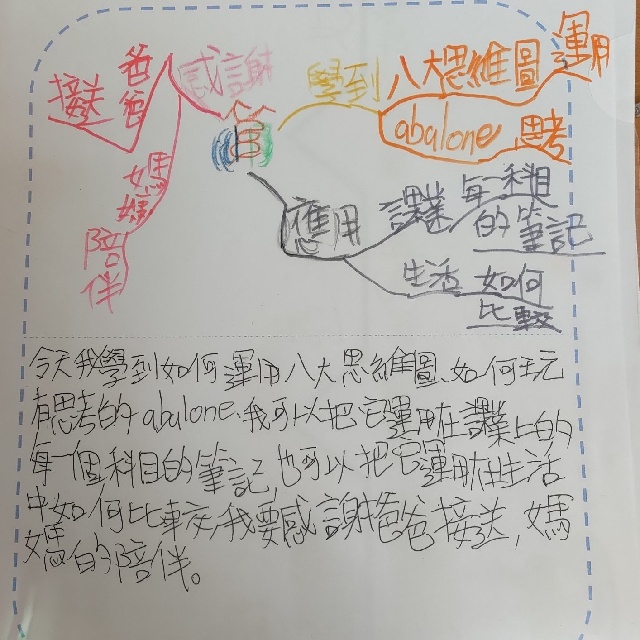 感謝
爸爸
接送
媽媽
陪伴
學到
八大思維圖
運用
abalone
思考
應用
課業
每一科目
的筆記
生活
如何
比較
今天我學到如何運用八大思維圖、如何玩
有思考的abalone、我可以把它運用在課業上的
每一個科目的筆記,也可以把它運用在生活
中如何比較,我要感謝爸爸接送,媽
媽的陪伴。